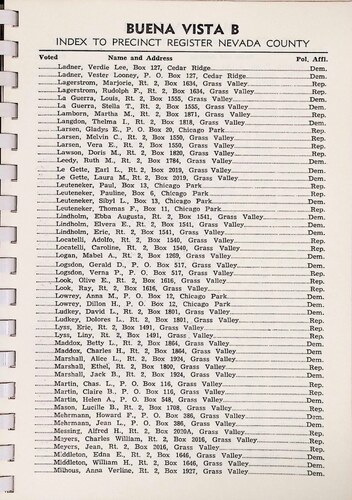 BUENA VISTA B
INDEX TO PRECINCT REGISTER NEVADA COUNTY
Voted Name and Address Pol. Affl.
Ladner, Verdie Lee, Box 127, Cedar Ridge Dem.
Ladner, Vester Looney, P. O. Box 127, Cedar Ridge Dem.
Lagerstrom, Marjorie, Rt. 2, Box 1634, Grass Valley Rep.
Lagerstrom, Rudolph F., Rt. 2, Box 1634, Grass Valley Rep.
La Guerra, Louis, Rt. 2, Box 1555, Grass Valley Dem.
La Guerra, Stella T., Rt. 2, Box 1555, Grass Valley Dem.
Lamborn, Martha M., Rt. 2, Box 1871, Grass Valley Rep.
Langdon, Thelma I., Rt. 2, Box 1818, Grass Valley Dem.
Larsen, Gladys E., P. O. Box 20, Chicago Park Rep.
Larsen, Melvin C., Rt. 2, Box 1550, Grass Valley Rep.
Larsen, Vera E., Rt. 2, Box 1550, Grass Valley Rep.
Lawson, Doris M., Rt. 2, Box 1820, Grass Valley Rep.
Leedy, Ruth M., Rt. 2, Box 1784, Grass Valley Dem.
Le Gette, Earl L., Rt. 2, Box 2019, Grass Valley Dem.
Le Gette, Laura M., Rt. 2, Box 2019, Grass Valley Dem.
Leuteneker, Paul, Box 13, Chicago Park Rep.
Leuteneker, Pauline, Box 6, Chicago Park Rep.
Leuteneker, Sibyl L., Box 13, Chicago Park Dem.
Leuteneker, Thomas F., Box 11, Chicago Park Rep.
Lindholm, Ebba Augusta, Rt. 2, Box 1541, Grass Valley Dem.
Lindholm, Elvera E., Rt. 2, Box 1541, Grass Valley Dem.
Lindholm, Eric, Rt. 2, Box 1541, Grass Valley Dem.
Locatelli, Adolfo, Rt. 2, Box 1540, Grass Valley Rep.
Locatelli, Caroline, Rt. 2, Box 1540, Grass Valley Rep.
Logan, Mabel A., Rt. 2, Box 1269, Grass Valley Dem.
Logsdon, Gerald D., P. O. Box 517, Grass Valley Dem.
Logsdon, Verna P., P. O. Box 517, Grass Valley Rep.
Look, Olive E., Rt. 2, Box 1616, Grass Valley Rep.
Look, Ray, Rt. 2, Box 1616, Grass Valley Rep.
Lowrey, Anna M., P. O. Box 12, Chicago Park Dem.
Lowrey, Dillon H., P. O. Box 12, Chicago Park Dem.
Ludkey, David L., Rt. 2, Box 1801, Grass Valley Dem.
Ludkey, Dolores L., Rt. 2, Box 1801, Grass Valley Rep.
Lyss, Eric, Rt. 2, Box 1491, Grass Valley Rep.
Lyss, Liny, Rt. 2, Box 1491, Grass Valley Rep.
Maddox, Betty L., Rt. 2, Box 1864, Grass Valley Dem.
Maddox, Charles H., Rt. 2, Box 1864, Grass Valley Dem.
Marshall, Alice L., Rt. 2, Box 1924, Grass Valley Dem.
Marshall, Ethel, Rt. 2, Box 1800, Grass Valley Rep.
Marshall, Jack B., Rt. 2, Box 1924, Grass Valley Dem.
Martin, Chas. L., P. O. Box 116, Grass Valley Rep.
Martin, Claire B., P. O. Box 116, Grass Valley Rep.
Martin, Helen A., P. O. Box 548, Grass Valley Dem.
Mason, Lucille B., Rt. 2, Box 1708, Grass Valley Rep.
Mehrmann, Howard F., P. O. Box 386, Grass Valley Dem.
Mehrmann, Jean L., P. O. Box 386, Grass Valley Dem.
Messing, Alfred H., Rt. 2, Box 2020A, Grass Valley Rep.
Meyers, Charles William, Rt. 2, Box 2016, Grass Valley Rep.
Meyers, Jean, Rt. 2, Box 2016, Grass Valley Rep.
Middleton, Edna E., Rt. 2, Box 1646, Grass Valley Dem.
Middleton, William H., Rt. 2, Box 1646, Grass Valley Dem.
Milhous, Anna Verline, Rt. 2, Box 1927, Grass Valley Dem.